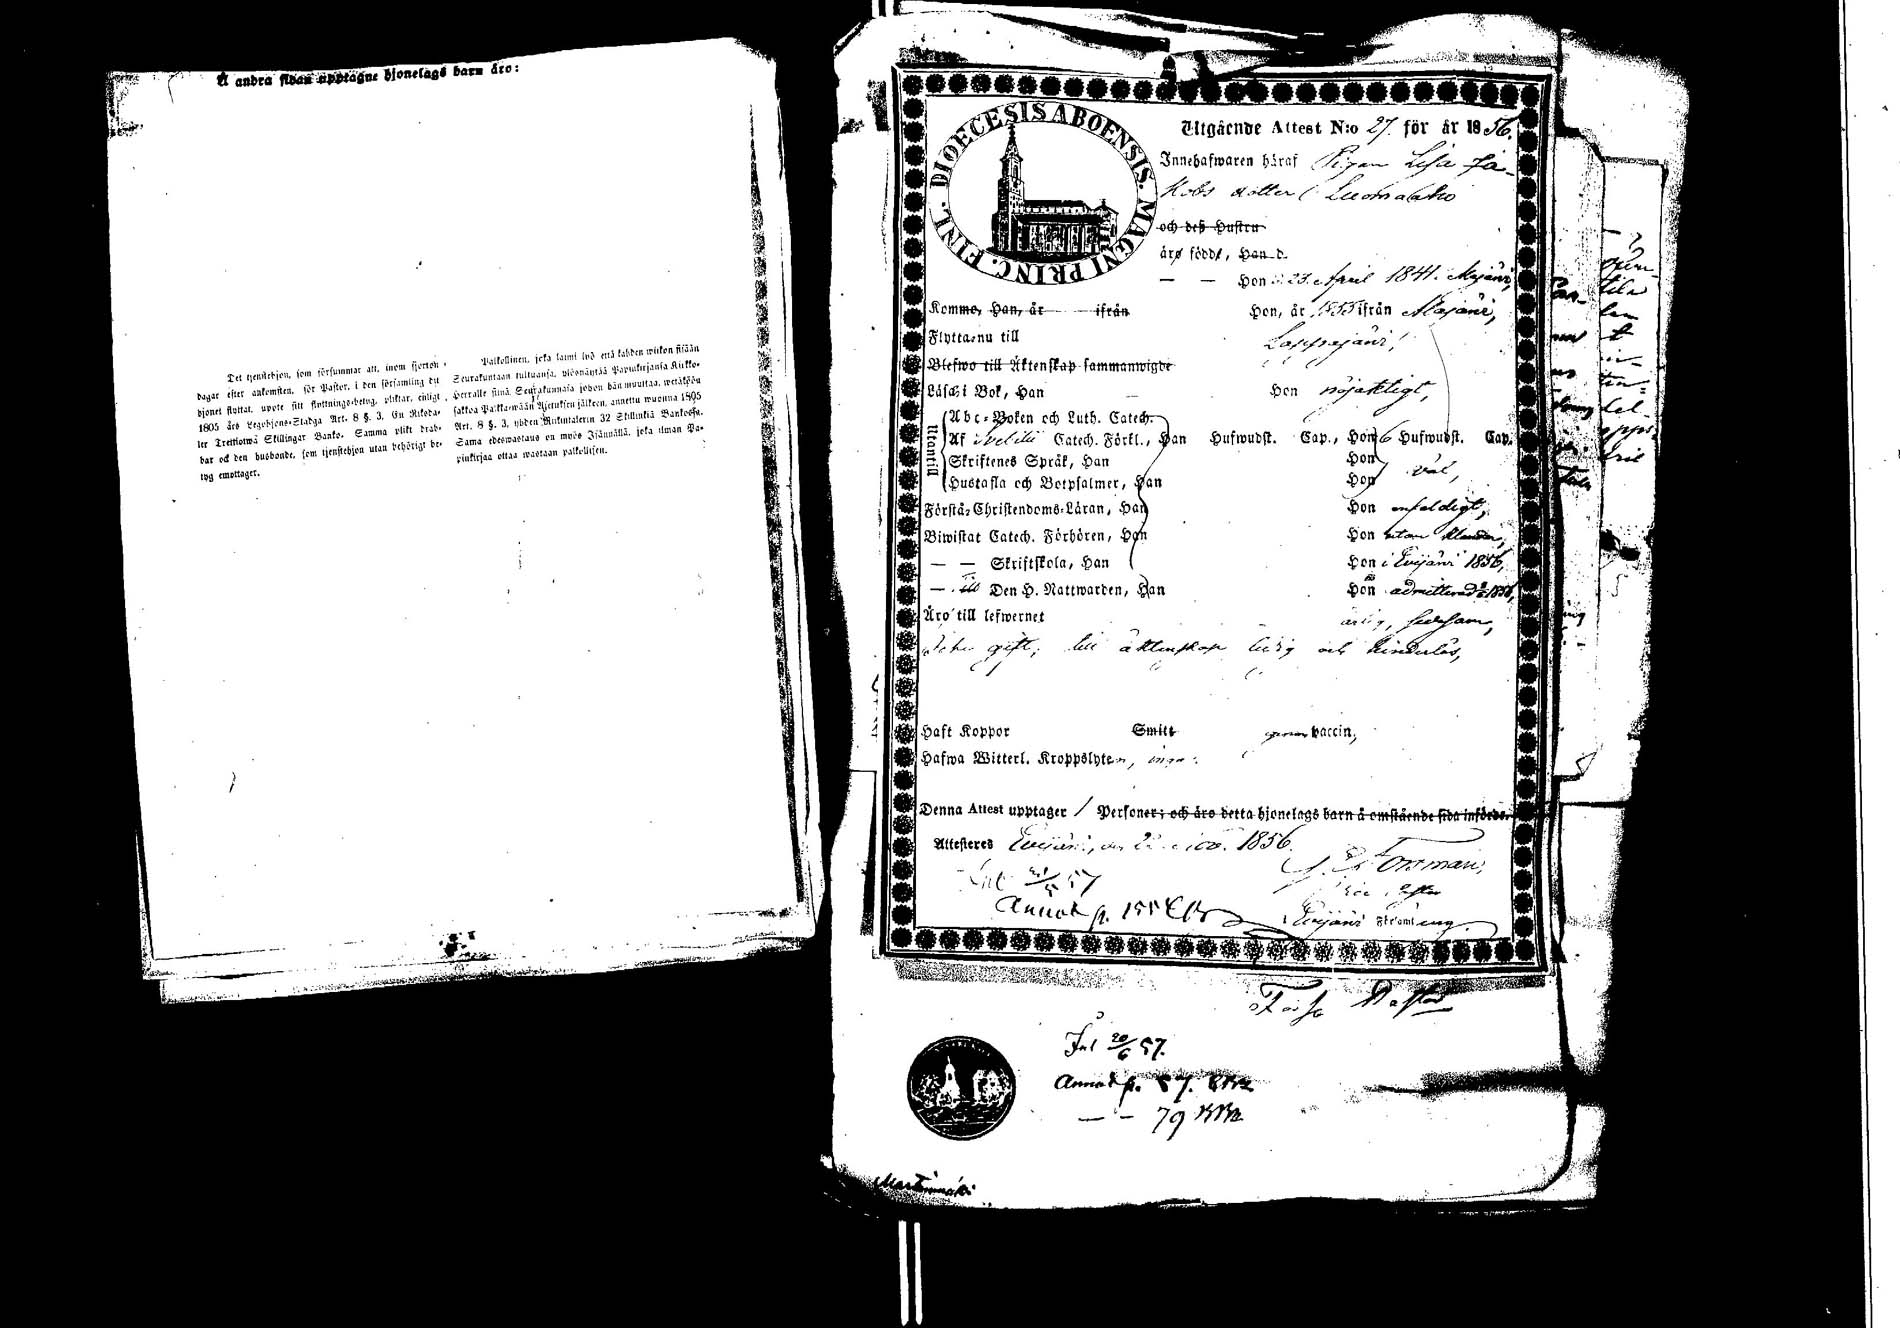 Å andra sidan upptagne hjonelags barn äro:
Det tjenstehjon, som försummar att, inom fjorton
dagar efter ankomsten, för Pastor, i den församling dit
hjonet flyttat, uppte sitt flyttnings-betyg, pliktar, enligt
1805 års Legohjons-Stadga Art. 8 §. 3. En Riksda-
ler Trettiotwå Skillingar Banko. Samma plikt drab-
bar ock den husbonde, som tjenstehjon utan behörigt be-
tyg emottager.
Palkollinen, joka laimi lyö että kahden wiikon sisään
Seurakuntaan tultuansa, ylösnäyttää Papinkirjansa Kirkko-
Herralle siinä Seurakunnasa johon hän muuttaa, wetäköön
sakkoa Palkkawään Asetuksen jälkeen, annettu wuonna 1805
Art. 8 §. 3, yhden Riikintalerin 32 Skillinkiä Bankossa.
Sama edeswastaus on myös Isännällä, joka ilman Pa-
pinkirjaa ottaa wastaan palkollisen.
DIOECESIS ABOENSIS. MAGNI PRINC. FINL.
Utgående Attest N:o 27. för år 1856.
Innehafwaren häraf Pigan Lisa Ja-
kobs dotter Luomaaho
och deß Hustru
äro födde, Han d.
— — Hon d. 23 April 1841. Alajärvi,
Komme, Han, år ifrån Hon, år 1855 ifrån Alajärvi,
Flytta nu till Lappajärvi,
Blefwo till Äktenskap sammanwigde
Läsa i Bok, Han — Hon nöjaktigt,
Utantill
Abc-Boken och Luth. Catech.
Af Svebilii Catech. Förkl., Han Hufwudst. Cap., Hon 6 Hufwudst. Cap.
Skriftenes Språk, Han Hon väl,
Hustafla och Botpsalmer, Han Hon
Förstå Christendoms-Läran, Han Hon enfaldigt,
Biwistat Catech. Förhören, Han Hon utan klander,
— — Skriftskola, Han Hon i Evijärvi 1856,
— till Den H. Nattwarden, Han Hon admitterad 1856,
Äro till lefwernet ärlig,
Icke gift, till äktenskap ledig och hinderlös,
Haft Koppor Smitt genom vaccin,
Hafwa Witterl. Kroppslyten, inga.
Denna Attest upptager 1 Personer; och äro detta hjonelags barn å omstående sida införde.
Attesteras Evijärvi, den 1856.
Forsman,
Annot p. 155
Evijärvi Församling.
Inl 20/6 57.
Annot p. 57.
— — 79
Martinmäki